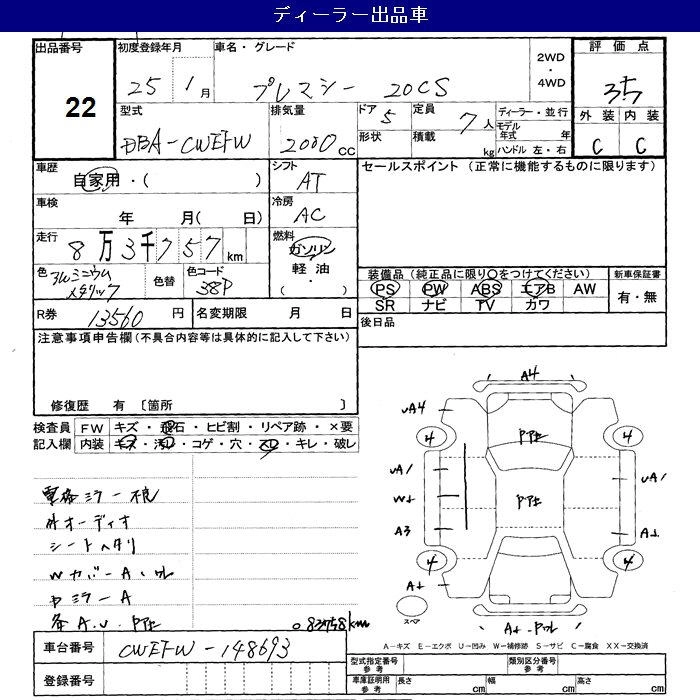 ディーラー出品車
出品番号 22
初度登録年月 25 1月
車名・グレード プレマシー 20CS
2WD ・ 4WD
評価点 3.5
外装 内装
C C
型式 DBA-CWEFW
排気量 2000cc
ドア 5 定員 7人
形状 積載 kg
ディーラー・並行
モデル年式 年
ハンドル 左・右
車歴 自家用・( )
シフト AT
セールスポイント (正常に機能するものに限ります)
車検 年 月( 日)
冷房 AC
走行 8万3千757km
燃料 ガソリン
軽油
( ・ )
色 アルミニウムメタリック
色替
色コード 38P
装備品(純正品に限り○をつけてください)
PS PW ABS エアB AW
SR ナビ TV カワ
新車保証書
有・無
R券 13560円
名変期限 月 日
後日品
注意事項申告欄(不具合内容等は具体的に記入して下さい)
修復歴 有〔箇所 〕
検査員 FW キズ・飛石・ヒビ割・リペア跡・×要
記入欄 内装 キズ・汚れ・コゲ・穴・スレ・キレ・破レ
電格ミラー不良
外オーディオ
シートヘタリ
Wカバー A・ワレ
ミラーA
A.U.
83758km
A4
UA4
4 4
UA1
UA1
A3
4 4
スペア
A-キズ E-エクボ U-凹み W-補修跡 S-サビ C-腐食 XX-交換済
車台番号 CWEFW-148693
登録番号
型式指定番号 参考
類別区分番号 参考
車庫証明用 参考 長さ cm 幅 cm 高さ cm